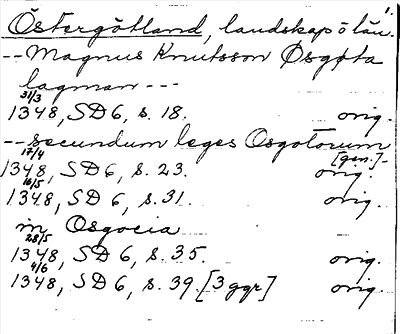 1.
Östergötland, landskap o län.
-- Magnus Knutsson Øsgøta
lagman ---
31/3
1348, SD 6, s. 18. orig.
-- secundum leges Osgotorum
17/4 [gen.]-
1348, SD 6, s. 23. orig.
16/5
1348, SD 6, s. 31. orig.
in Osgocia
28/5
1348, SD 6, s. 35. orig.
4/6
1348, SD 6, s. 39. [3 ggr] orig.